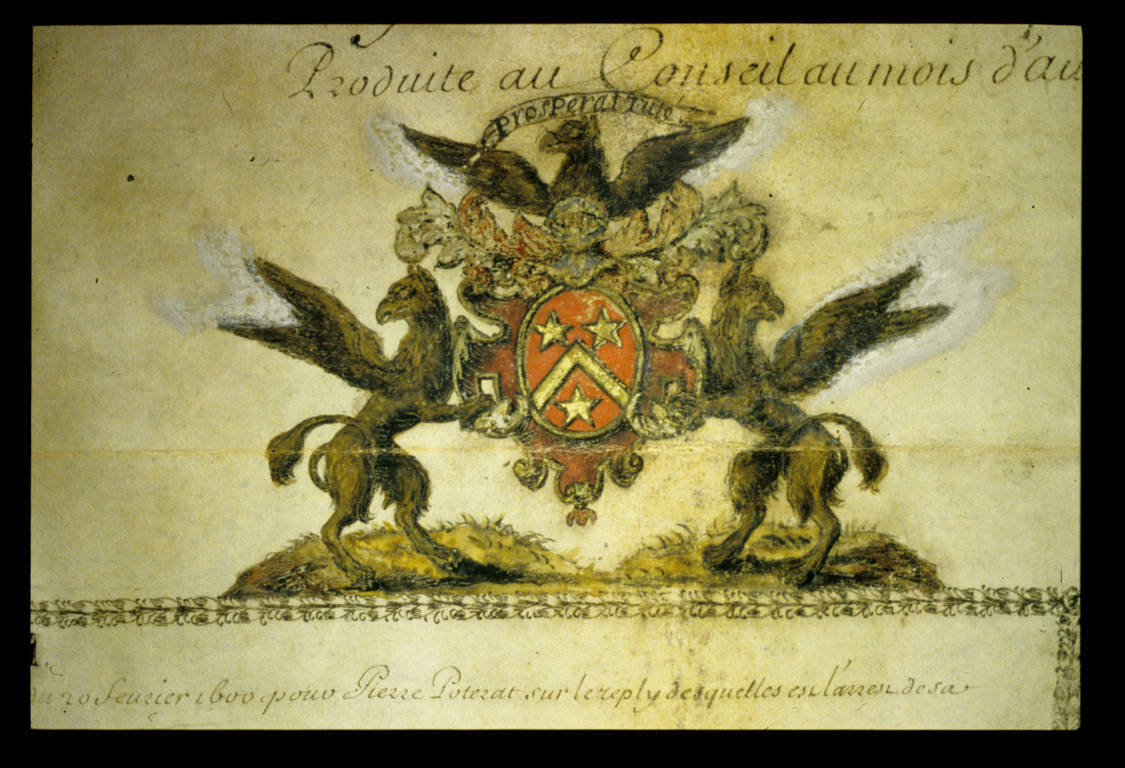 Produite au Conseil au mois d'au
prosperat Tute
du 20 feurier 1600 pour Pierre Poterat sur le reply desquelles est l'arrest de sa